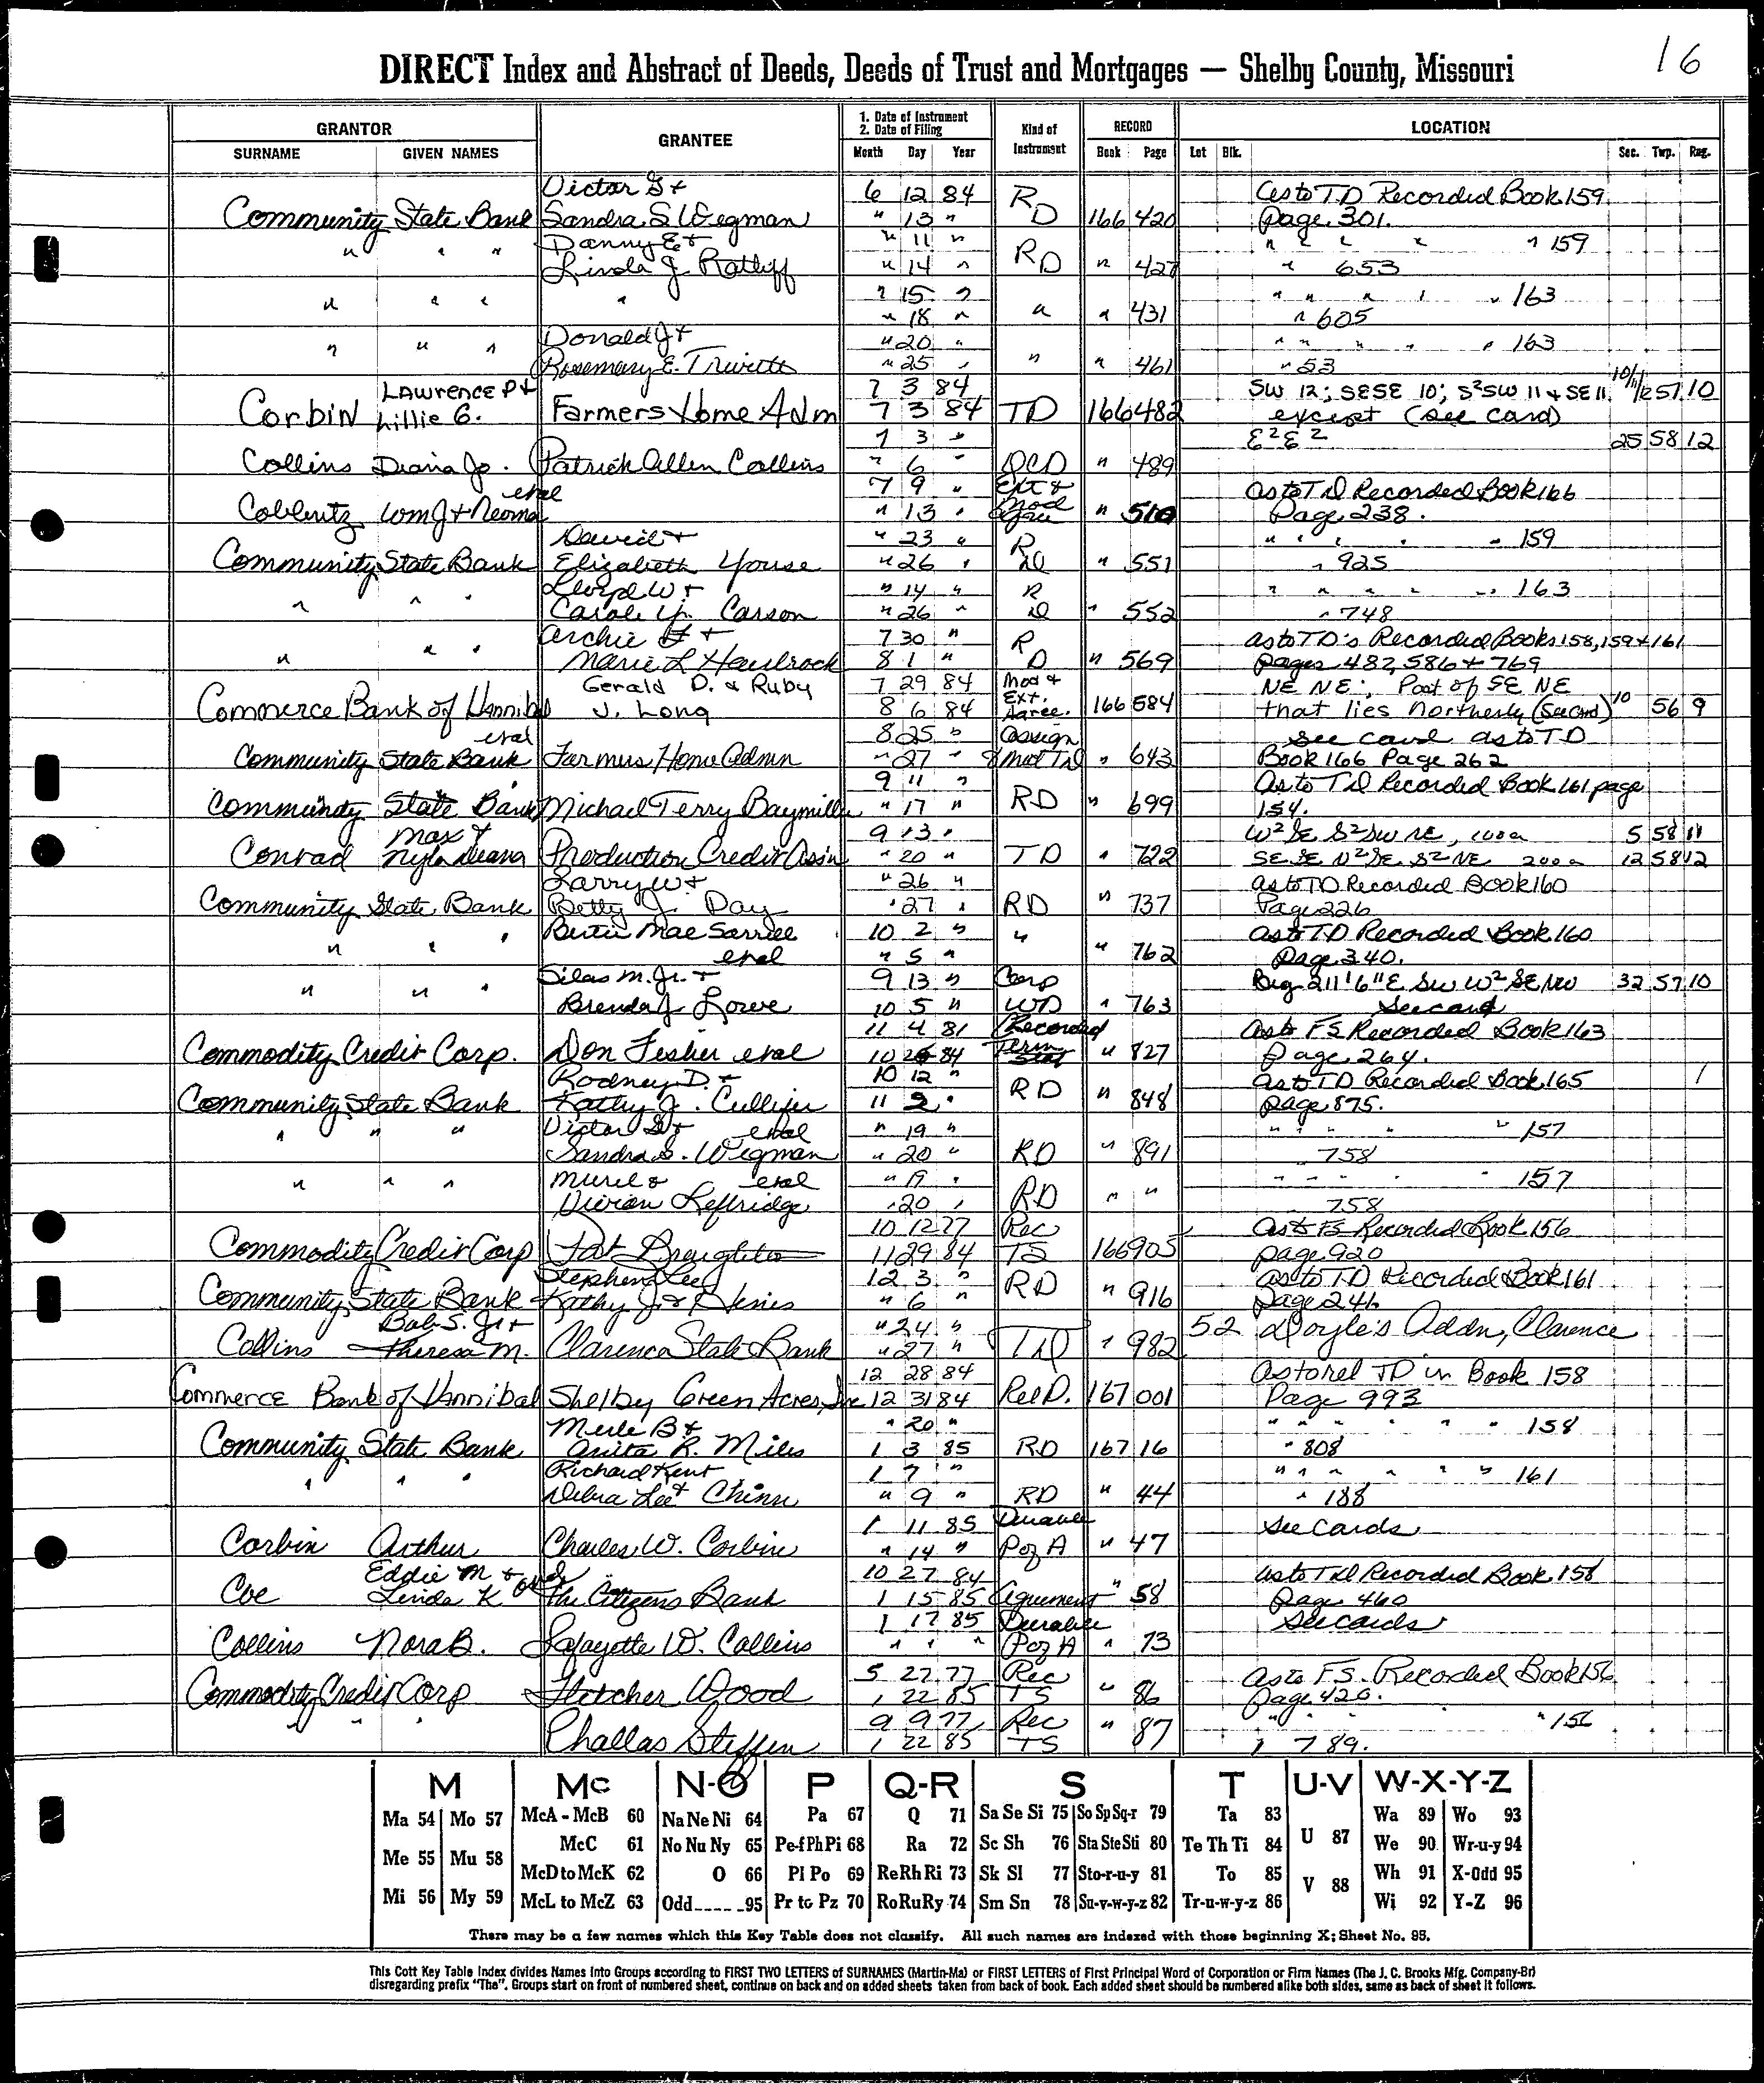 16
DIRECT Index and Abstract of Deeds, Deeds of Trust and Mortgages — Shelby County, Missouri
GRANTOR GRANTEE 1. Date of Instrument 2. Date of Filing Kind of Instrument RECORD LOCATION
SURNAME GIVEN NAMES Month Day Year Book Page Lot Blk. Sec. Twp. Rng.
Victor G + 6 12 84 R As to TD Recorded Book 159
Community State Bank Sandra S. Wegman " 13 " D 166 420 page 301.
Danny E + " 11 " " " " " " 159
" " " Linda J. Ratliff " 14 " RD " 427 " 653
" 15 " " " " " " 163
" " " " " 18 " " " 431 " 605
Donald J + " 20 " " " " " " 163
" " " Rosemary E. Triviett " 25 " " " 461 " 53
Lawrence P + 7 3 84 SW 12; SESE 10; S²SW 11 + SE 11 57 10
Corbin Lillie G. Farmers Home Adm 7 3 84 TD 166 482 except (see card)
7 3 " E²E² 25 58 12
Collins Diana Jo. Patrick Allen Collins " 6 " QCD " 489
etal 7 9 " Ext + As to TD Recorded Book 166
Coblentz Wm J + Neoma " 13 " Mod Agree " 510 Page 238.
David + " 23 " R " " " " " 159
Community State Bank Elizabeth Youse " 26 " D " 551 " 925
Lloyd W + " 14 " R " " " " " 163
" " " Carole Y. Carson " 26 " D " 552 " 748
Archie F + 7 30 " R As to TD's Recorded Books 158, 159 + 161
" " " Marie L. Havlrock 8 1 " D " 569 pages 482, 586 + 769
Gerald D. & Ruby 7 29 84 Mod + NE NE; Part of SE NE
Commerce Bank of Hannibal J. Long 8 6 84 Ext. Agree. 166 584 that lies northerly (see card) 10 56 9
etal 8 25 " Assign see card as to TD
Community State Bank Farmers Home Admn " 27 " & Mod TD " 643 Book 166 Page 262
9 11 " As to TD Recorded Book 161 page
Community State Bank Michael Terry Baymiller " 17 " RD " 699 154.
Max + 9 13 " W²SE S²SW NE, 100a 5 58 11
Conrad Nyla Deana Production Credit Assn " 20 " TD " 722 SE SE N²SE S²NE 200a 12 58 12
Larry W + " 26 " As to TD Recorded Book 160
Community State Bank Betty J. Day " 27 " RD " 737 Page 226
Bertie Mae Sarrell 10 2 " " As to TD Recorded Book 160
" " " etal " 5 " " 762 Page 340.
Silas M. Jr. + 9 13 " Corp Beg 211'6" E SW W² SE NW 32 57 10
" " " Brenda J. Lowe 10 5 " WD " 763 see card
11 4 81 Recorded As to FS Recorded Book 163
Commodity Credit Corp. Don Fesher etal 10 26 84 Term Stat " 827 Page 264.
Rodney D. + 10 12 " As to TD Recorded Book 165 1
Community State Bank Kathy J. Cullifer 11 2 " RD " 848 page 875.
Victor G + etal " 19 " " " " " " 157
" " " Sandra S. Wegman " 20 " RD " 891 758
Murel & etal " 19 " " " " " 157
" " " Vivian Leftridge " 20 " RD " " 758
10 12 77 Rec As to FS Recorded Book 156
Commodity Credit Corp Pat Broughton 11 29 84 TS 166 905 page 920
Stephen Lee 12 3 " RD As to TD Recorded Book 161
Community State Bank Kathy J. + " 6 " " 916 page 246
Bob S. Jr + " 24 " 52 Doyle's Addn, Clarence
Collins Theresa M. Clarence State Bank " 27 " TD " 982
12 28 84 As to rel TD in Book 158
Commerce Bank of Hannibal Shelby Green Acres Inc 12 31 84 Rel D. 167 001 Page 993
Merle B + " 20 " " " " " " " 158
Community State Bank Anita R. Miles 1 3 85 RD 167 16 " 808
Richard Kent 1 7 " " " " " " " 161
" " " Debra Lee + Chinn " 9 " RD " 44 " 188
1 11 85 Durable See Cards
Corbin Arthur Charles W. Corbin " 14 " P of A " 47
Eddie M + 10 27 84 As to TD Recorded Book 158
Coe Linda K The Citizens Bank 1 15 85 Agreement " 58 Page 460
1 17 85 Durable See cards
Collins Nora B. Lafayette W. Collins " " " P of A " 73
5 27 77 Rec As to F.S. Recorded Book 156
Commodity Credit Corp Fletcher Wood 1 22 85 TS " 86 page 420.
9 9 77 Rec " " " 156
" " " Challas Steffen 1 22 85 TS " 87 " 789.
M Mc N-O P Q-R S T U-V W-X-Y-Z
Ma 54 Mo 57 McA - McB 60 Na Ne Ni 64 Pa 67 Q 71 Sa Se Si 75 So Sp Sq-r 79 Ta 83 U 87 Wa 89 Wo 93
Me 55 Mu 58 McC 61 No Nu Ny 65 Pe-f Ph Pi 68 Ra 72 Sc Sh 76 Sta Ste Sti 80 Te Th Ti 84 We 90 Wr-u-y 94
McD to McK 62 O 66 Pl Po 69 Re Rh Ri 73 Sk Sl 77 Sto-r-u-y 81 To 85 V 88 Wh 91 X-Odd 95
Mi 56 My 59 McL to McZ 63 Odd 95 Pr to Pz 70 Ro Ru Ry 74 Sm Sn 78 Su-v-w-y-z 82 Tr-u-w-y-z 86 Wi 92 Y-Z 96
There may be a few names which this Key Table does not classify. All such names are indexed with those beginning X; Sheet No. 95.
This Cott Key Table Index divides Names into Groups according to FIRST TWO LETTERS of SURNAMES (Martin-Ma) or FIRST LETTERS of First Principal Word of Corporation or Firm Names (The J. C. Brooks Mfg. Company-Br)
disregarding prefix "The". Groups start on front of numbered sheet, continue on back and on added sheets taken from back of book. Each added sheet should be numbered alike both sides, same as back of sheet it follows.